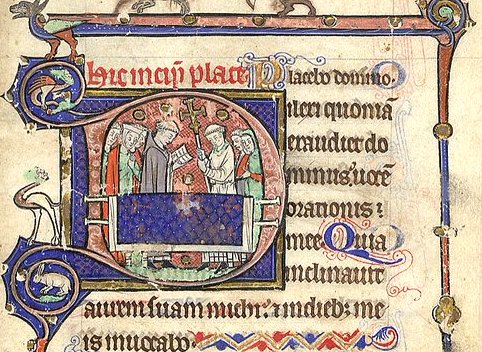 hic incip̄ place Placebo domino.
Dilexi quoniā
exaudiet do
minus: uocē
orationis
mee Quia
inclinauit
aurem suam michi: ⁊ in dieb; me
is inuocabo